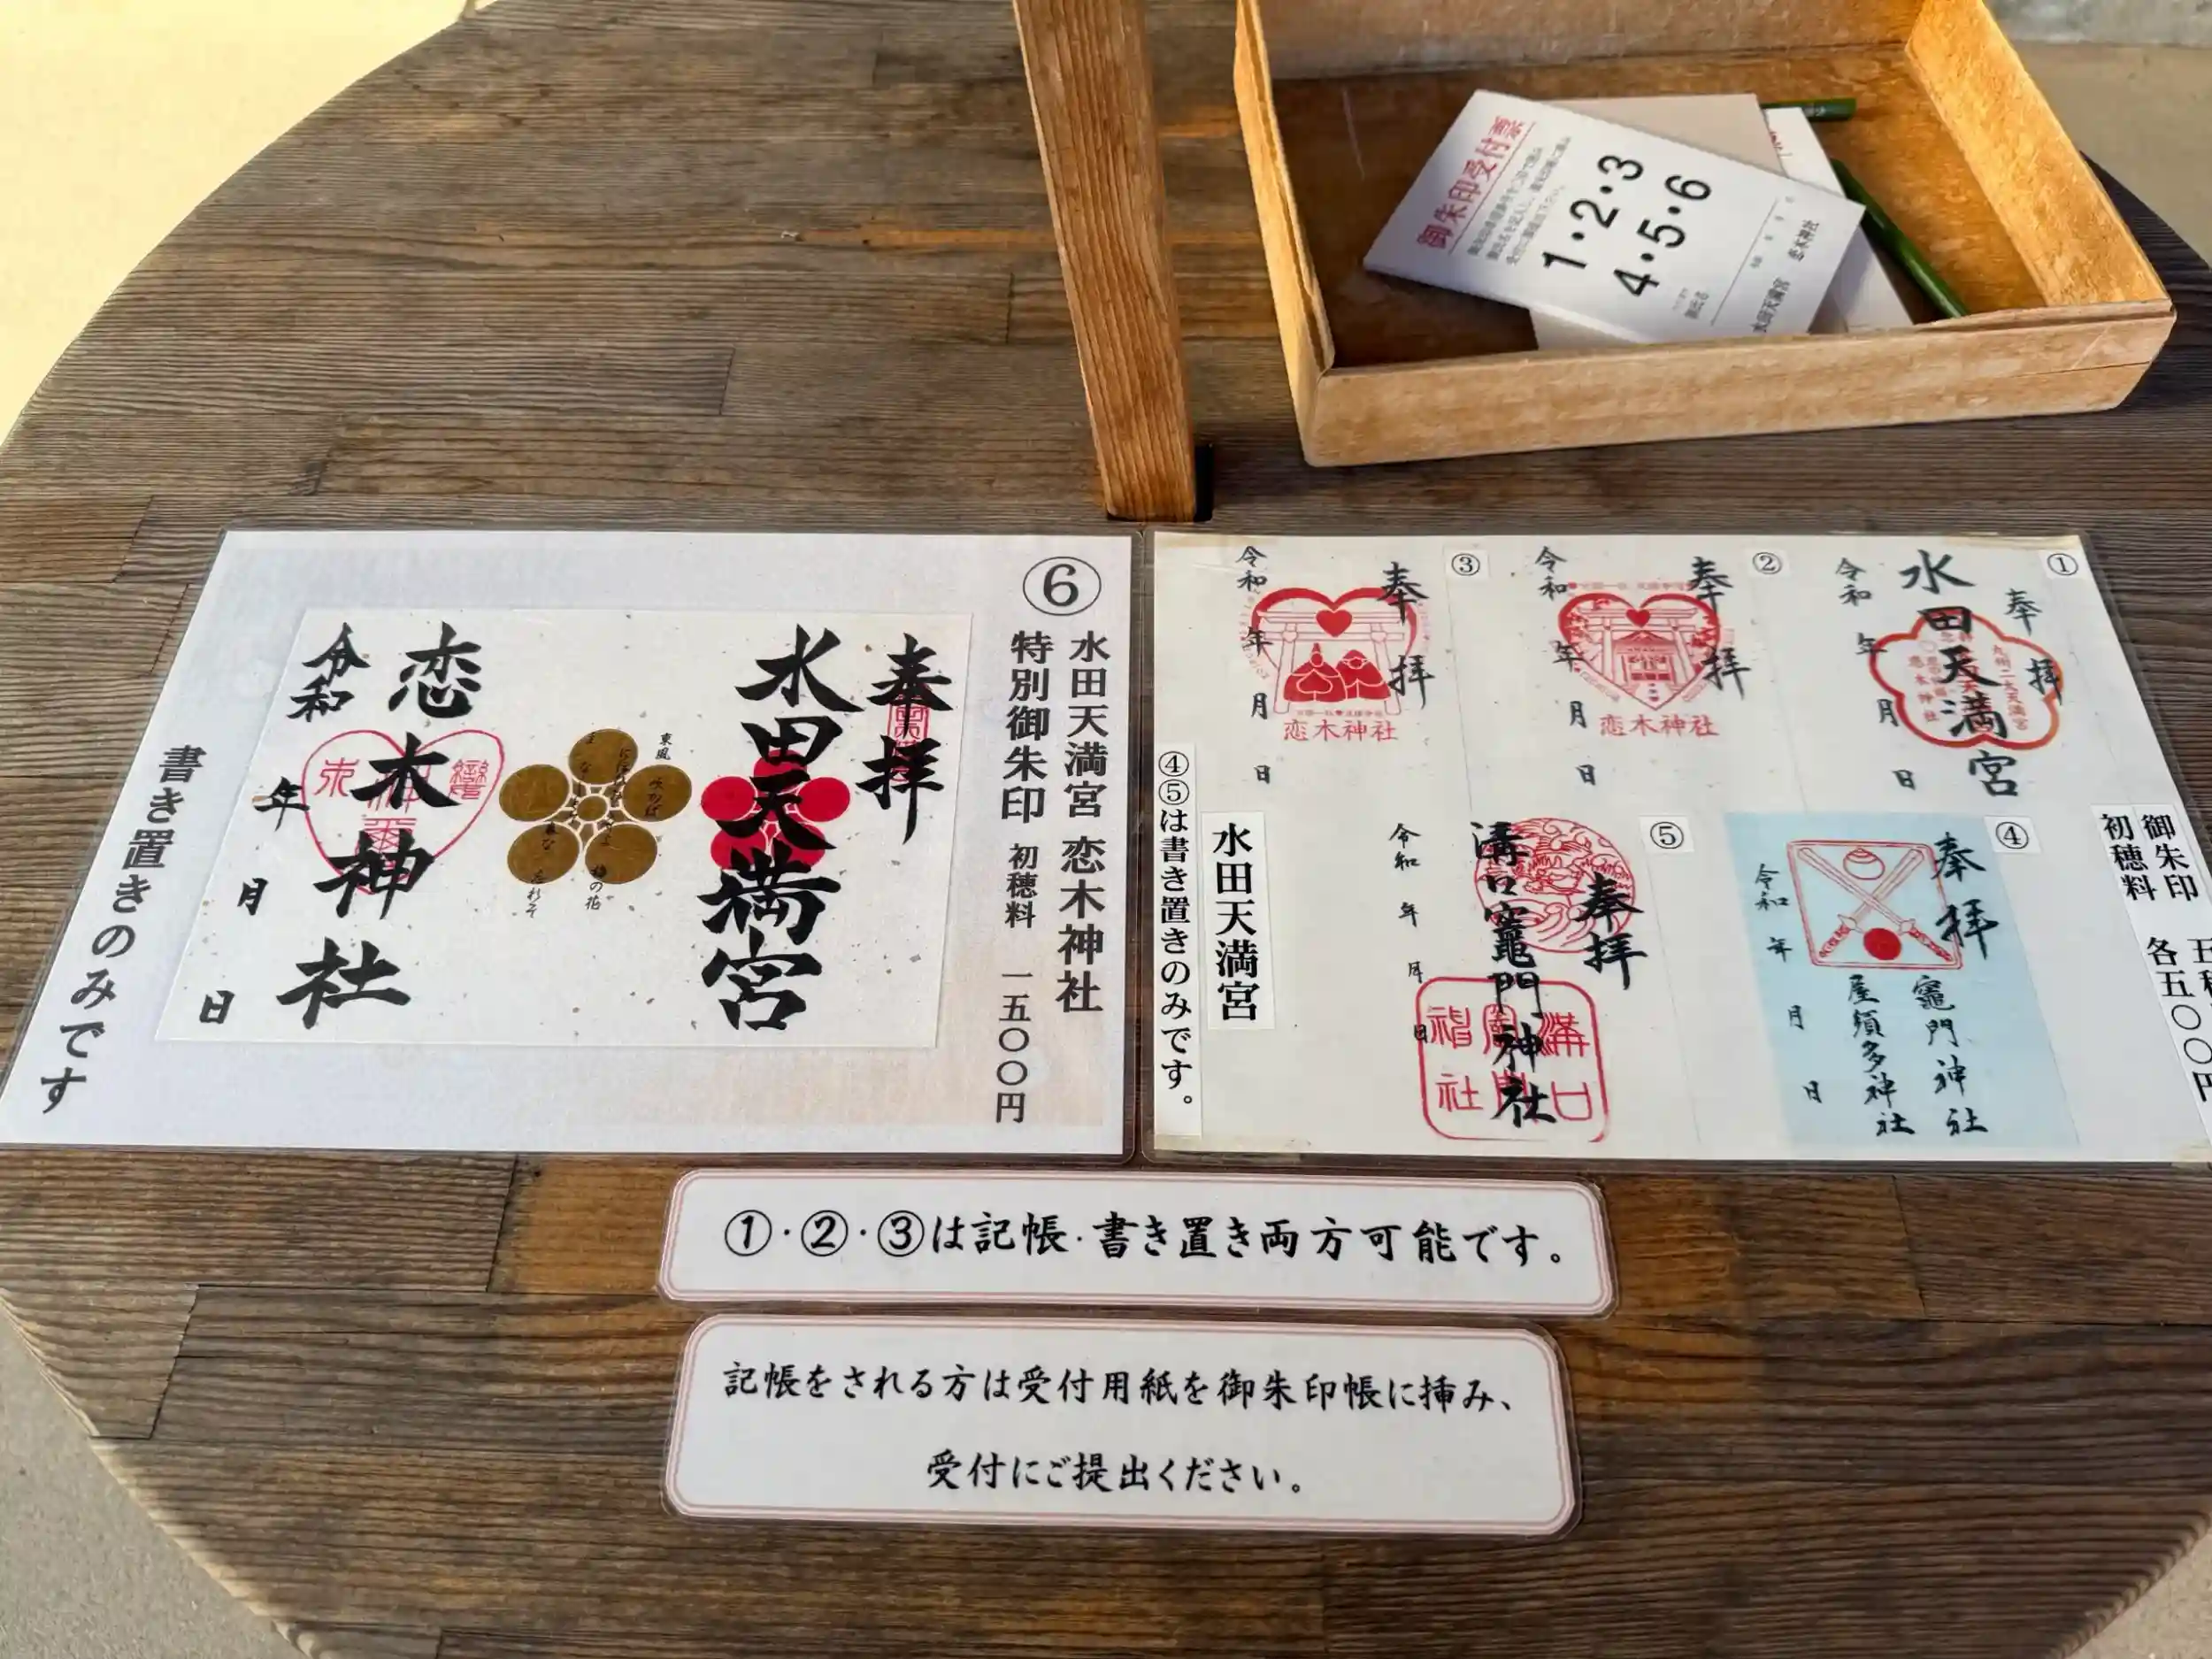 御朱印受付票
1・2・3
4・5・6
水田天満宮
恋木神社
⑥
水田天満宮 恋木神社
特別御朱印 初穂料 一五〇〇円
奉拝
水田天満宮
東風
梅の花
恋木神社
令和 年 月 日
書き置きのみです
御朱印
初穂料 各五〇〇円
①
奉拝
水田天満宮
令和 年 月 日
②
奉拝
恋木神社
令和 年 月 日
③
奉拝
恋木神社
令和 年 月 日
④
奉拝
竈門神社
屋須多神社
令和 年 月 日
⑤
奉拝
溝口竈門神社
令和 年 月 日
水田天満宮
④⑤は書き置きのみです。
①・②・③は記帳・書き置き両方可能です。
記帳をされる方は受付用紙を御朱印帳に挿み、
受付にご提出ください。